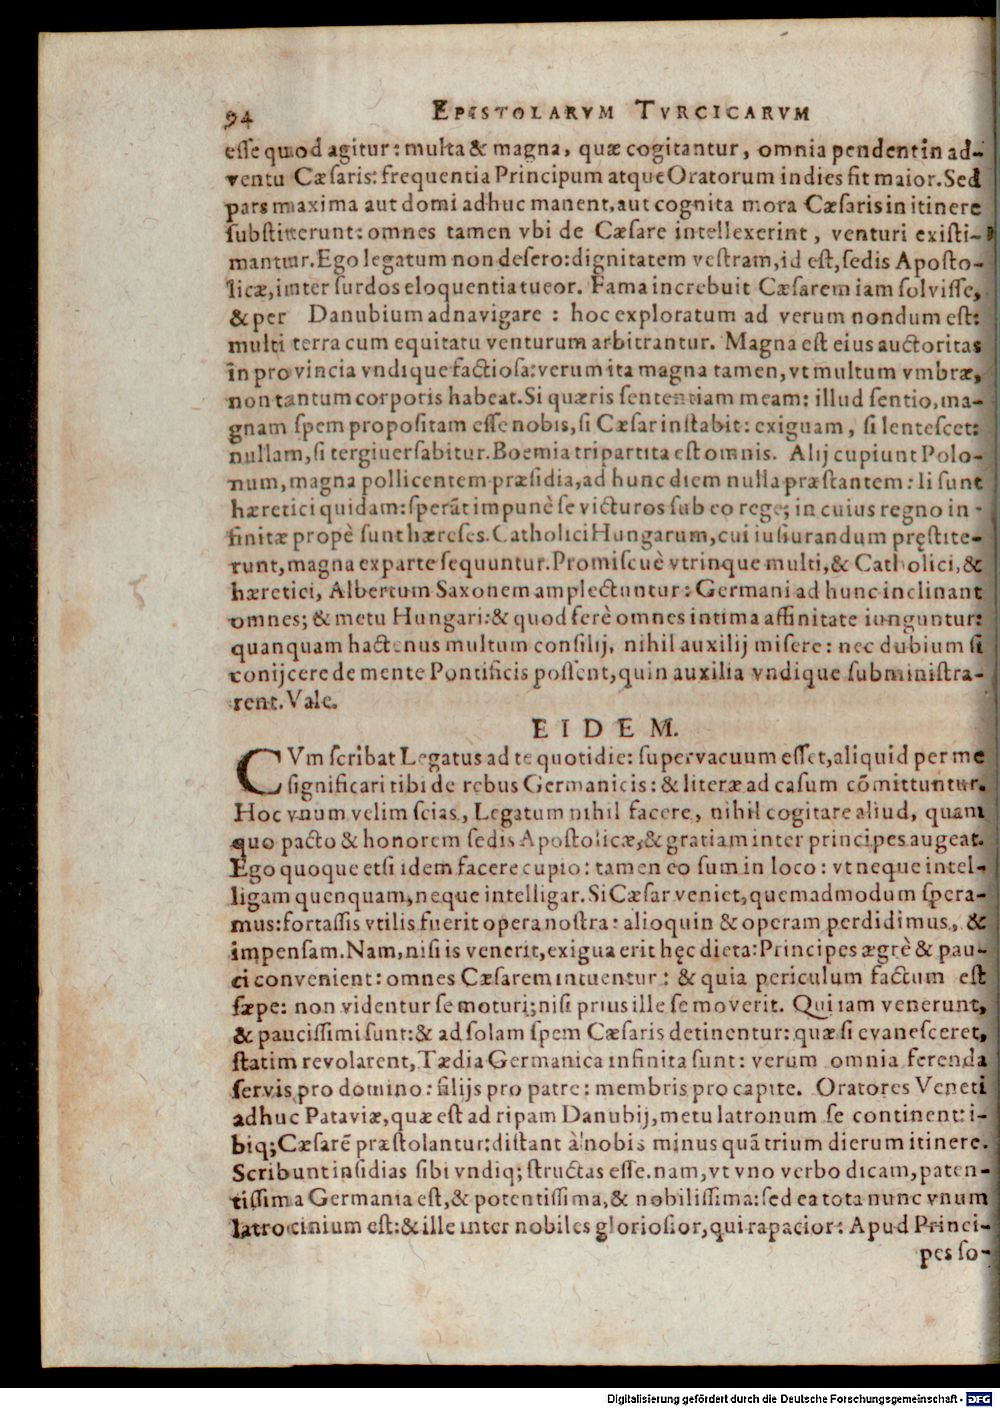 94 EPISTOLARVM TVRCICARVM
esse quod agitur: multa & magna, quæ cogitantur, omnia pendent in ad-
ventu Cæsaris: frequentia Principum atque Oratorum indies fit maior. Sed
pars maxima aut domi adhuc manent, aut cognita mora Cæsaris in itinere
substiterunt: omnes tamen vbi de Cæsare intellexerint, venturi existi-
mantur. Ego legatum non desero: dignitatem vestram, id est, sedis Aposto-
licæ, inter surdos eloquentia tueor. Fama increbuit Cæsarem iam solvisse,
& per Danubium adnavigare: hoc exploratum ad verum nondum est:
multi terra cum equitatu venturum arbitrantur. Magna est eius auctoritas
in provincia vndique factiosa: verum ita magna tamen, vt multum vmbræ,
non tantum corporis habeat. Si quæris sententiam meam: illud sentio, ma-
gnam spem propositam esse nobis, si Cæsar instabit: exiguam, si lentescet:
nullam, si tergiuersabitur. Boemia tripartita est omnis. Alij cupiunt Polo-
num, magna pollicentem præsidia, ad hunc diem nulla præstantem: Ii sunt
hæretici quidam: sperāt impunè se victuros sub eo rege; in cuius regno in-
finitæ propè sunt hæreses. Catholici Hungarum, cui iusiurandum pręstite-
runt, magna ex parte sequuntur. Promiscuè vtrinque multi, & Catholici, &
hæretici, Albertum Saxonem amplectuntur: Germani ad hunc inclinant
omnes; & metu Hungari: & quod ferè omnes intima affinitate iunguntur:
quanquam hactenus multum consilij, nihil auxilij misere: nec dubium si
conijcere de mente Pontificis possent, quin auxilia vndique subministra-
rent. Vale.
EIDEM.
CVm scribat Legatus ad te quotidie: supervacuum esset, aliquid per me
significari tibi de rebus Germanicis: & literæ ad casum cōmittuntur.
Hoc vnum velim scias, Legatum nihil facere, nihil cogitare aliud, quam
quo pacto & honorem sedis Apostolicæ, & gratiam inter principes augeat.
Ego quoque etsi idem facere cupio: tamen eo sum in loco: vt neque intel-
ligam quenquam, neque intelligar. Si Cæsar veniet, quemadmodum spera-
mus: fortassis vtilis fuerit opera nostra: alioquin & operam perdidimus, &
impensam. Nam, nisi is venerit, exigua erit hęc dieta: Principes ægrè & pau-
ci convenient: omnes Cæsarem intuentur: & quia periculum factum est
sæpe: non videntur se moturi; nisi prius ille se moverit. Qui iam venerunt,
& paucissimi sunt: & ad solam spem Cæsaris detinentur: quæ si evanesceret,
statim revolarent, Tædia Germanica infinita sunt: verum omnia ferenda
servis pro domino: filijs pro patre: membris pro capite. Oratores Veneti
adhuc Pataviæ, quæ est ad ripam Danubij, metu latronum se continent: i-
biq; Cæsarē præstolantur: distant à nobis minus quā trium dierum itinere.
Scribunt insidias sibi vndiq; structas esse. nam, vt vno verbo dicam, paten-
tissima Germania est, & potentissima, & nobilissima: sed ea tota nunc vnum
latrocinium est: & ille inter nobiles gloriosior, qui rapacior: Apud Princi-
pes so-
Digitalisierung gefördert durch die Deutsche Forschungsgemeinschaft - DFG